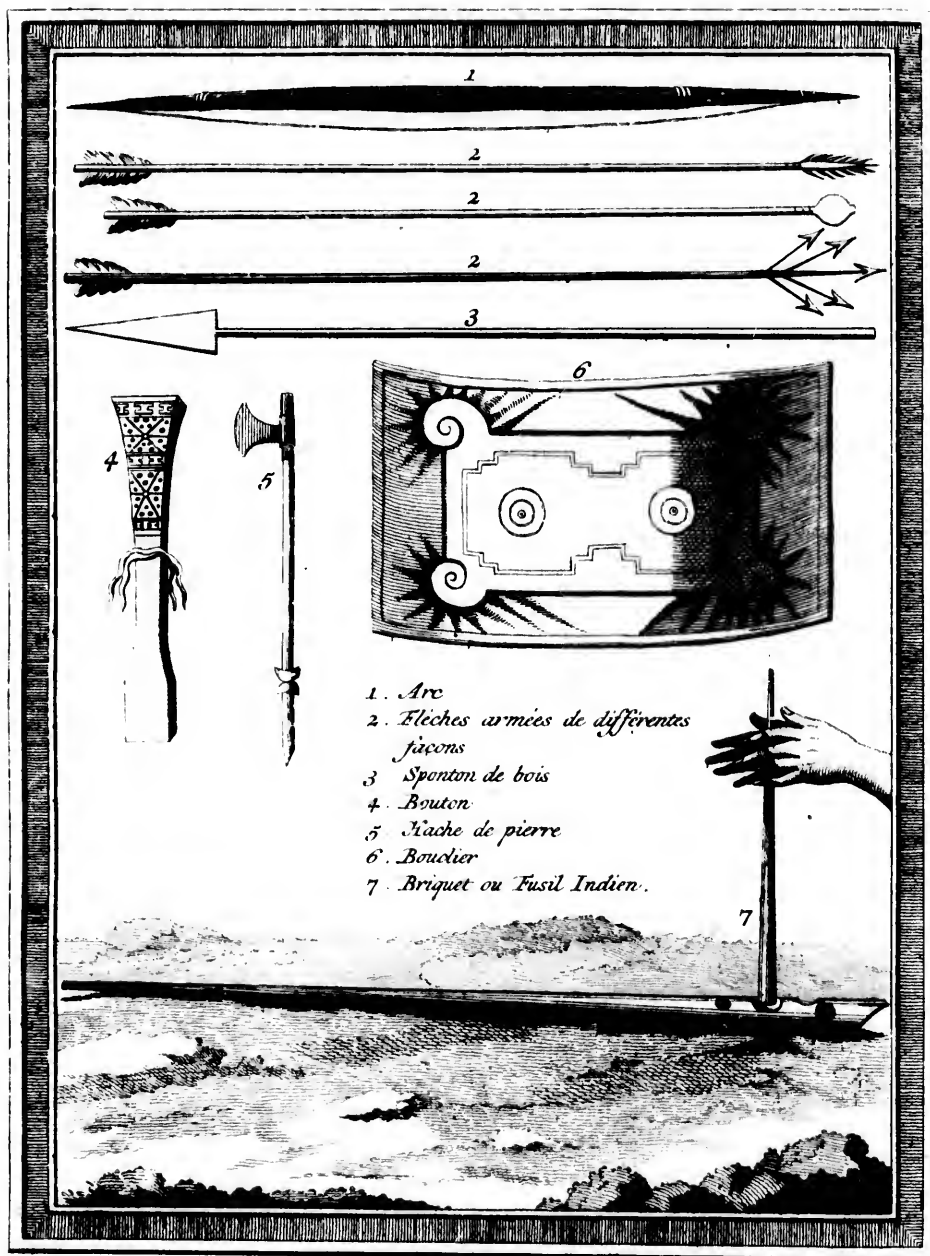 1
2
2
2
3
6
4
5
1. Arc
2. Fléches armées de différentes
façons
3 Sponton de bois
4. Bouton
5 Hache de pierre
6. Bouclier
7. Briquet ou Fusil Indien.
7